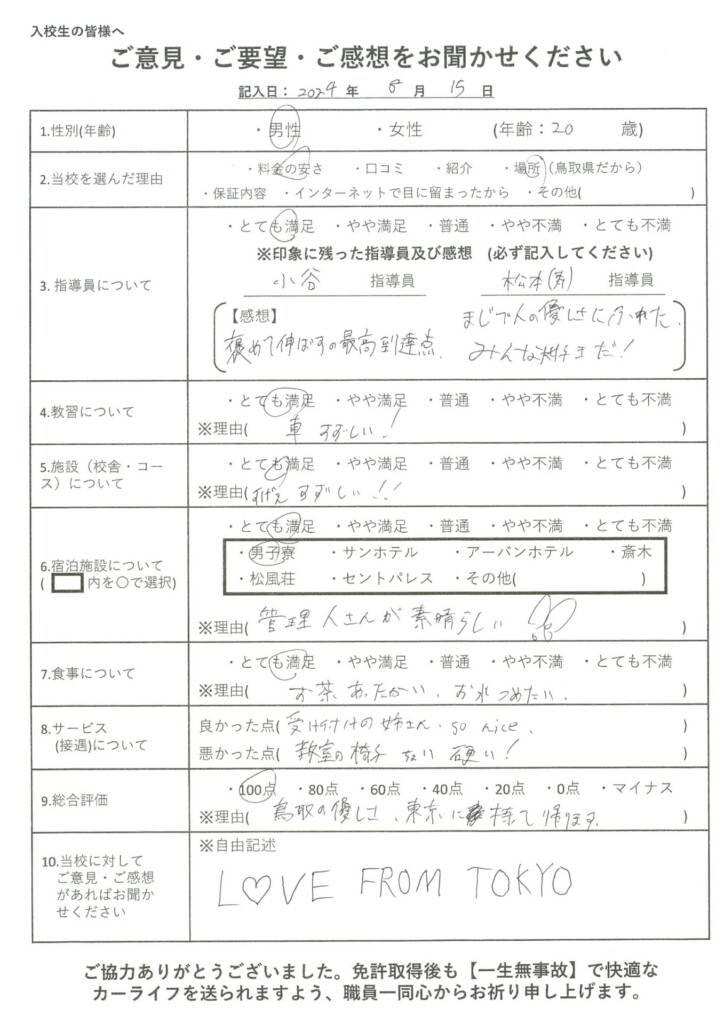 入校生の皆様へ
ご意見・ご要望・ご感想をお聞かせください
記入日：2024 年 8 月 15 日
1.性別(年齢) ・男性 ・女性 (年齢：20 歳)
2.当校を選んだ理由 ・料金の安さ ・口コミ ・紹介 ・場所（鳥取県だから）
・保証内容 ・インターネットで目に留まったから ・その他( )
3. 指導員について ・とても満足 ・やや満足 ・普通 ・やや不満 ・とても不満
※印象に残った指導員及び感想 (必ず記入してください)
小谷 指導員 松本(芳) 指導員
【感想】 まじで人の優しさにふれた。
褒めて伸ばすの最高到達点。 みんな好きだ！
4.教習について ・とても満足 ・やや満足 ・普通 ・やや不満 ・とても不満
※理由( 車 すずしい！ )
5.施設（校舎・コース）について ・とても満足 ・やや満足 ・普通 ・やや不満 ・とても不満
※理由( すげえ すずしい！！ )
6.宿泊施設について ・とても満足 ・やや満足 ・普通 ・やや不満 ・とても不満
( 内を○で選択) ・男子寮 ・サンホテル ・アーバンホテル ・斎木
・松風荘 ・セントパレス ・その他( )
※理由( 管理人さんが 素晴らしい !! )
7.食事について ・とても満足 ・やや満足 ・普通 ・やや不満 ・とても不満
※理由( お茶 あったかい、お水 つめたい。 )
8.サービス 良かった点( 受け付けの姉さん、so nice. )
(接遇)について 悪かった点( 教室の椅子 ちょい 硬い！ )
9.総合評価 ・100点 ・80点 ・60点 ・40点 ・20点 ・0点 ・マイナス
※理由( 鳥取の優しさ、東京に 持って帰ります。 )
10.当校に対して ※自由記述
ご意見・ご感想
があればお聞か
せください
L♡VE FROM TOKYO
ご協力ありがとうございました。免許取得後も【一生無事故】で快適な
カーライフを送られますよう、職員一同心からお祈り申し上げます。